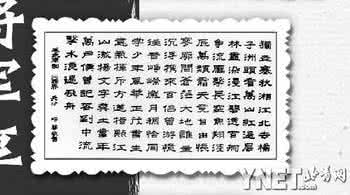 獨立寒秋湘江北去橘
子洲頭看萬山紅遍層
林盡染漫江碧透百舸
爭流鷹擊長空魚翔淺
底萬類霜天競自由悵
寥廓問蒼茫大地誰主
沉浮攜來百侶曾遊憶
往昔崢嶸歲月稠恰同
學少年風華正茂書生
意氣揮斥方遒指點江
山激揚文字糞土當年
萬戶侯曾記否到中流
擊水浪遏飛舟
YNET.com 北青网